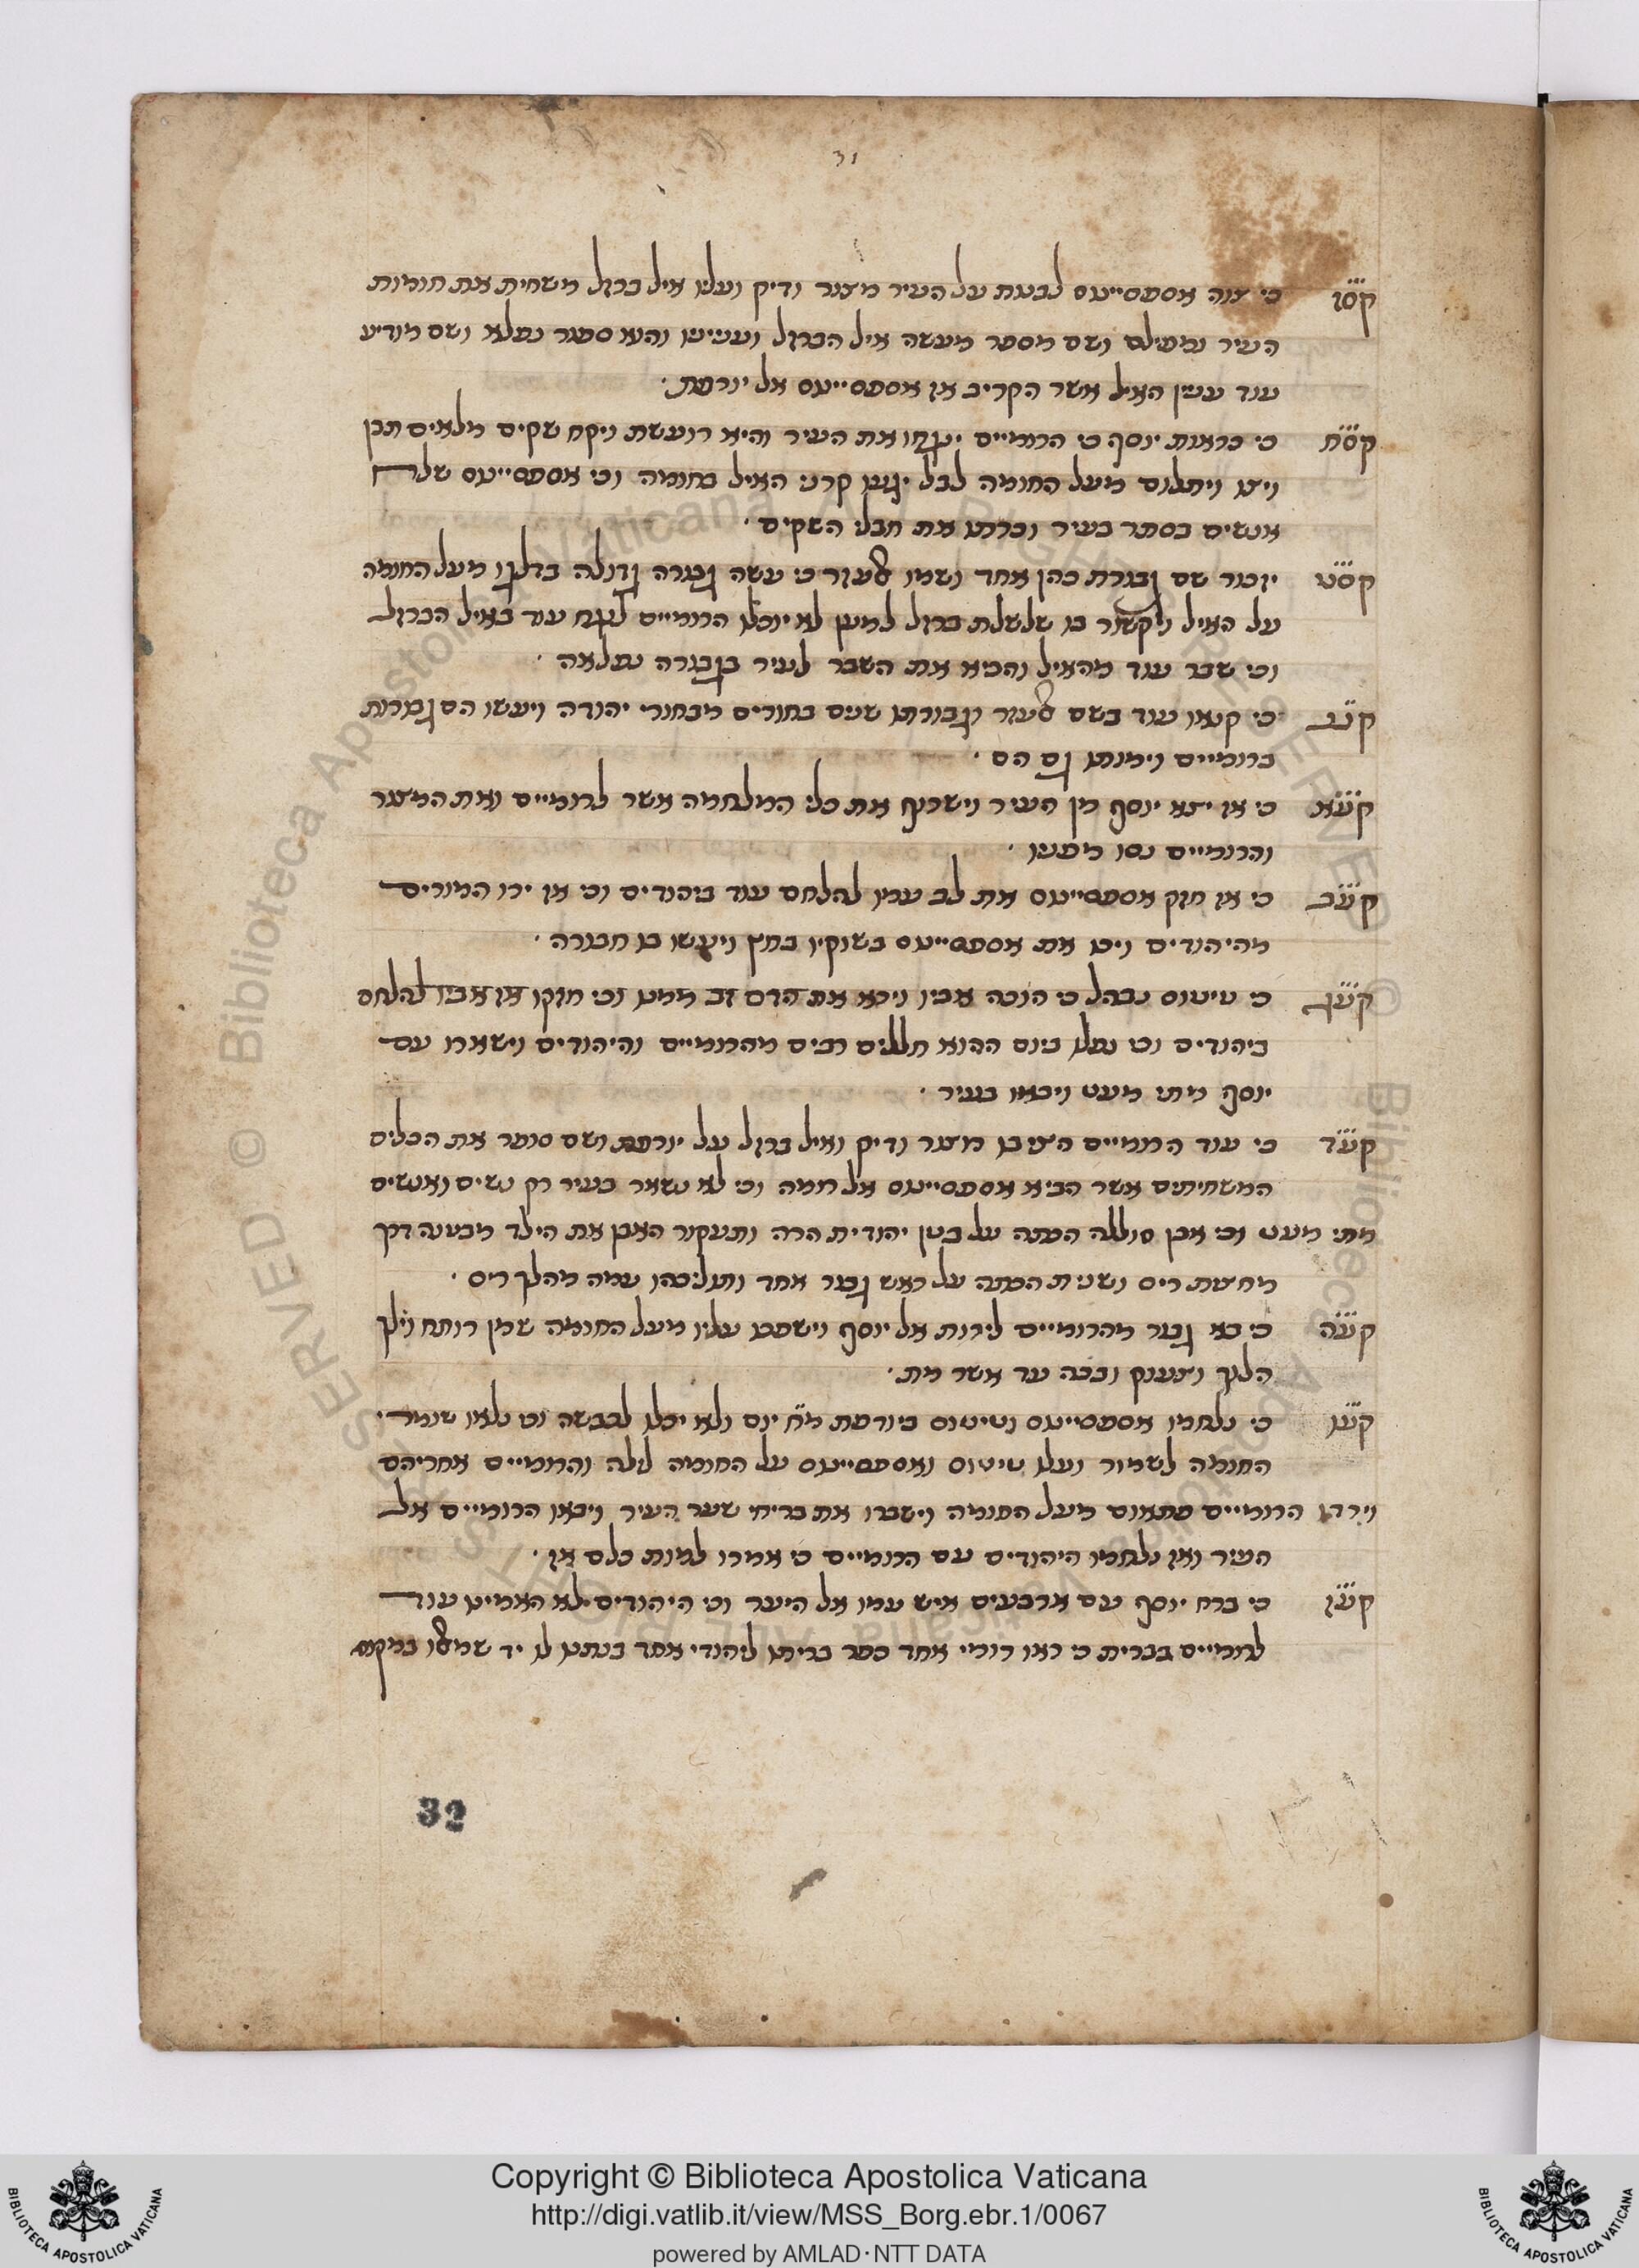 31
קסז כי צוה אספסיינוס לבנות על העיר מצור ודיק ועליו איל ברזל משחית את חומות
העיר ומפילם ושם מספר מעשה איל הברזל ועניינו והוא ספור נפלא ושם מודיע
עוד ענין האיל אשר הקריב אז אספסיינוס אל יורפת
קסח כי כראות יוסף כי הרומיים ינגחו את העיר והיא רועשת ויקח שקים מלאים תבן
ויצו ויתלום מעל החומה לבל יגעו קרני האיל בחומה וכי אספסיינוס שלח
אנשים בסתר בעיר וכרתו את חבלי השקים
קסט יזכור שם גבורת כהן אחד ושמו לעזר כי עשה גבורה גדולה בדלגו מעל החומה
על האיל ויקשור בו שלשלת ברזל למען לא יוכלו הרומיים לנגח עוד באיל הברזל
וכי שבר עוד מהאיל והביא את השבר לעיר בגבורה נפלאה
קע כי קנאו עוד בשם לעזר וגבורתו שנים בחורים מבחורי יהודה ויעשו הם גבורות
ברומיים וימותו גם הם
קעא כי אז יצא יוסף מן העיר וישרוף את כלי המלחמה אשר לרומיים ואת המצור
והרומיים נסו מפניו
קעב כי אז חזק אספסיינוס את לב עמו להלחם עוד ביהודים וכי אז ירו המורים
מהיהודים ויכו את אספסיינוס בשוקיו בחץ ויעשו בו חבורה
קעג כי טיטוס נבהל כי הוכה אביו וירא את הדם זב ממנו וכי חזקו אז אביו להלחם
ביהודים וכי נפלו ביום ההוא חללים רבים מהרומיים והיהודים וישארו עם
יוסף מתי מעט ויבאו בעיר
קעד כי עוד הרומיים הציבו מצור ודיק ואיל ברזל על יורפת ושם סופר את הכלים
המשחיתים אשר הביא אספסיינוס אל חומה וכי לא נשאר בעיר רק נשים ואנשים
מתי מעט וכי אבן סוללה הכתה על בטן יהודית הרה ותעקור האבן את הילד מבטנה דרך
מחצית ריס ושנית הכתה על ראש גבור אחד ותוליכהו עמה מהלך ריס
קעה כי בא גבור מהרומיים לירות אל יוסף וישפכו עליו מעל החומה שמן רותח וילך
הלוך וצעוק ובכה עד אשר מת
קעו כי נלחמו אספסיינוס וטיטוס ביורפת מ״ח יום ולא יכלו לכבשה וכי נלאו שומרי
החומה לשמור ועלו טיטוס ואספסיינוס על החומה לילה והרומיים אחריהם
וירדו הרומיים פתאום מעל החומה וישברו את בריחי שער העיר ויבאו הרומיים אל
העיר ואז נלחמו היהודים עם הרומיים כי אמרו למות כלם אז
קעז כי ברח יוסף עם ארבעים איש עמו אל היער וכי היהודים לא האמינו עוד
לרומיים בברית כי ראו רומי אחד כפר בריתו ליהודי אחד בנתנו לו יד שמאלו במקום
32
Copyright © Biblioteca Apostolica Vaticana
http://digi.vatlib.it/view/MSS_Borg.ebr.1/0067
powered by AMLAD·NTT DATA